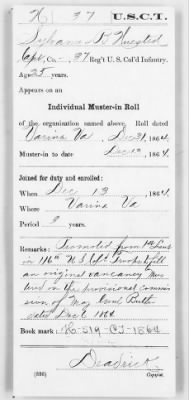 H | 37 | U.S.C.T.
Sylvanus H Huested
Capt, Co. –, 37 Reg't U. S. Col'd Infantry.
Age 25 years.
Appears on an
Individual Muster-in Roll
of the organization named above. Roll dated
Varina Va, Dec 21, 1864.
Muster-in to date Dec 13, 1864.
Joined for duty and enrolled:
When Dec 13, 1864.
Where Varina Va
Period 3 years.
Remarks: Promoted from 1st Lieut
in 116th U S Cold to fill
an original vacancy Mus
tered on the provisional commis
sion of Maj Genl Butler
dated Dec 6 1864
Book mark: R-519-CT-1864
Deadrick
(636) Copyist.